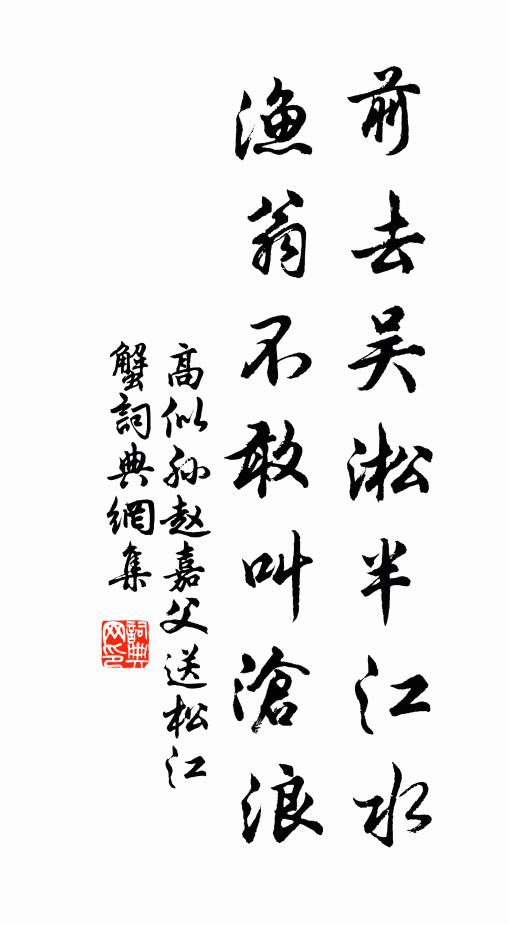 前去吴淞半江水
渔翁不敢叫滄浪
高似孙赵嘉父送松江
蟹詞典網集
詞典
网印